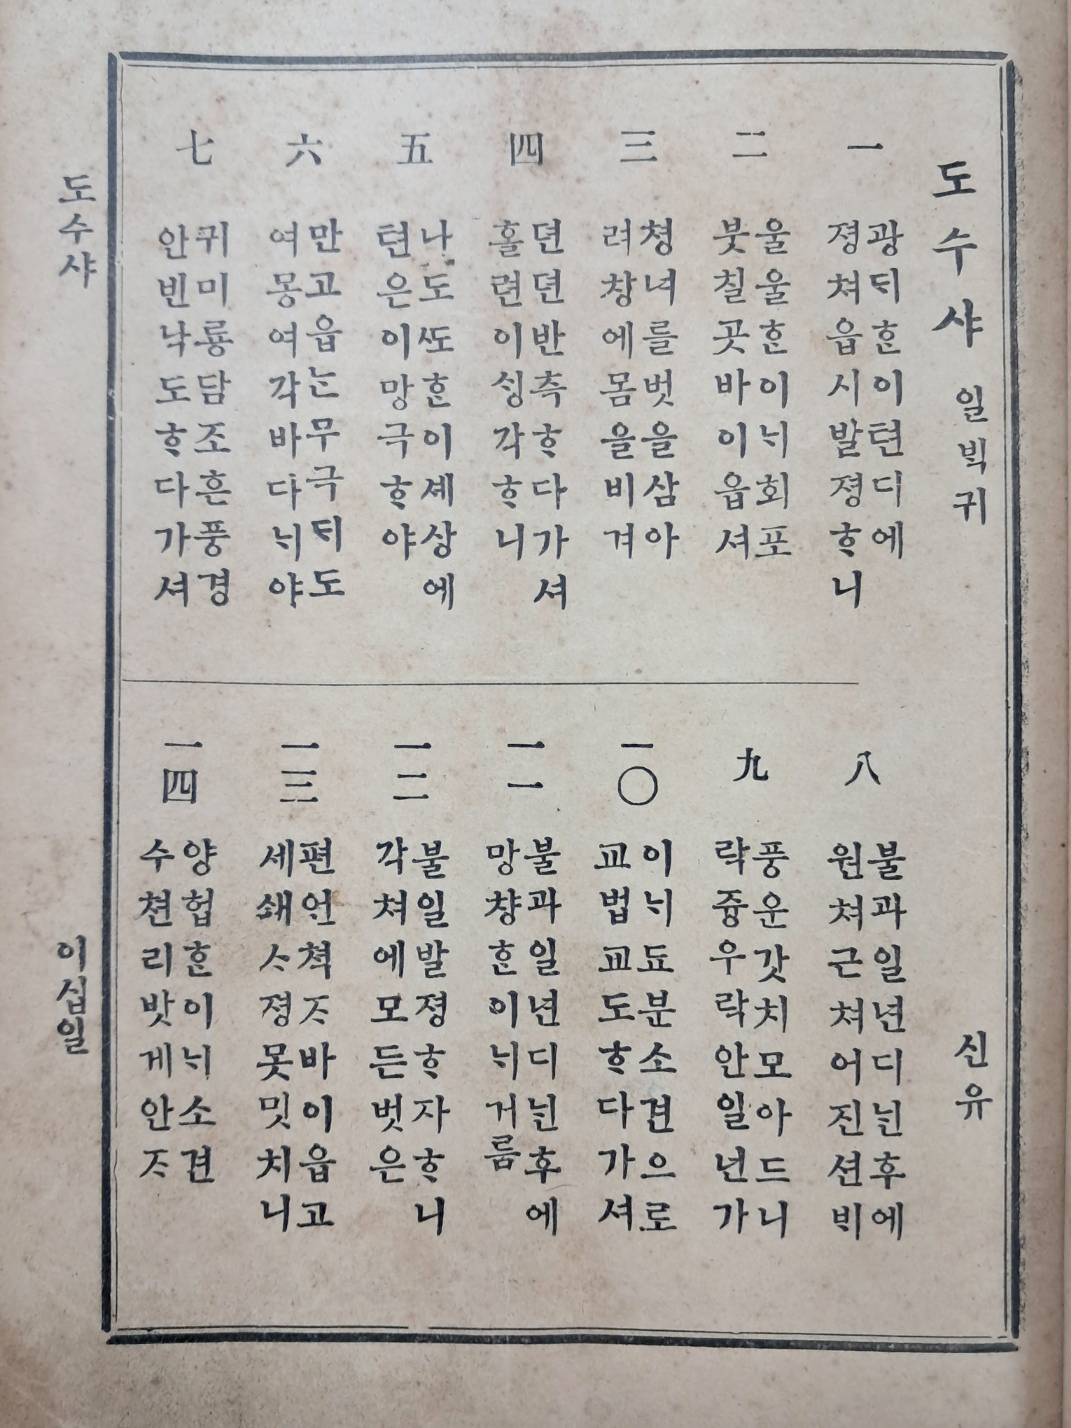 도수샤 일ᄇᆡᆨ귀 신유
一
광ᄃᆡᄒᆞᆫ이텬디에
졍쳐읍시발졍ᄒᆞ니
二
울울ᄒᆞᆫ이ᄂᆡ회포
붓칠곳바이읍셔
三
쳥녀를벗을삼아
려창에몸을비겨
四
뎐뎐반측ᄒᆞ다가셔
홀련이ᄉᆡᆼ각ᄒᆞ니
五
나도ᄯᅩᄒᆞᆫ이셰상에
텬은이망극ᄒᆞ야
六
만고읍는무극ᄃᆡ도
여몽여각바다ᄂᆡ야
七
귀미룡담조흔풍경
안빈낙도ᄒᆞ다가셔
八
불과일년디ᄂᆡᆫ후에
원쳐근쳐어진션ᄇᆡ
九
풍운갓치모아드니
락즁우락안일년가
一〇
이ᄂᆡ됴분소견으로
교법교도ᄒᆞ다가셔
一一
불과일년디ᄂᆡᆫ후에
망챵ᄒᆞᆫ이ᄂᆡ거름
一二
불일발졍ᄒᆞ자ᄒᆞ니
각쳐에모든벗은
一三
편언쳑ᄌᆞ바이읍고
세쇄ᄉᆞ졍못밋치니
一四
양협ᄒᆞᆫ이ᄂᆡ소견
수쳔리밧게안ᄌᆞ
도수샤 이십일